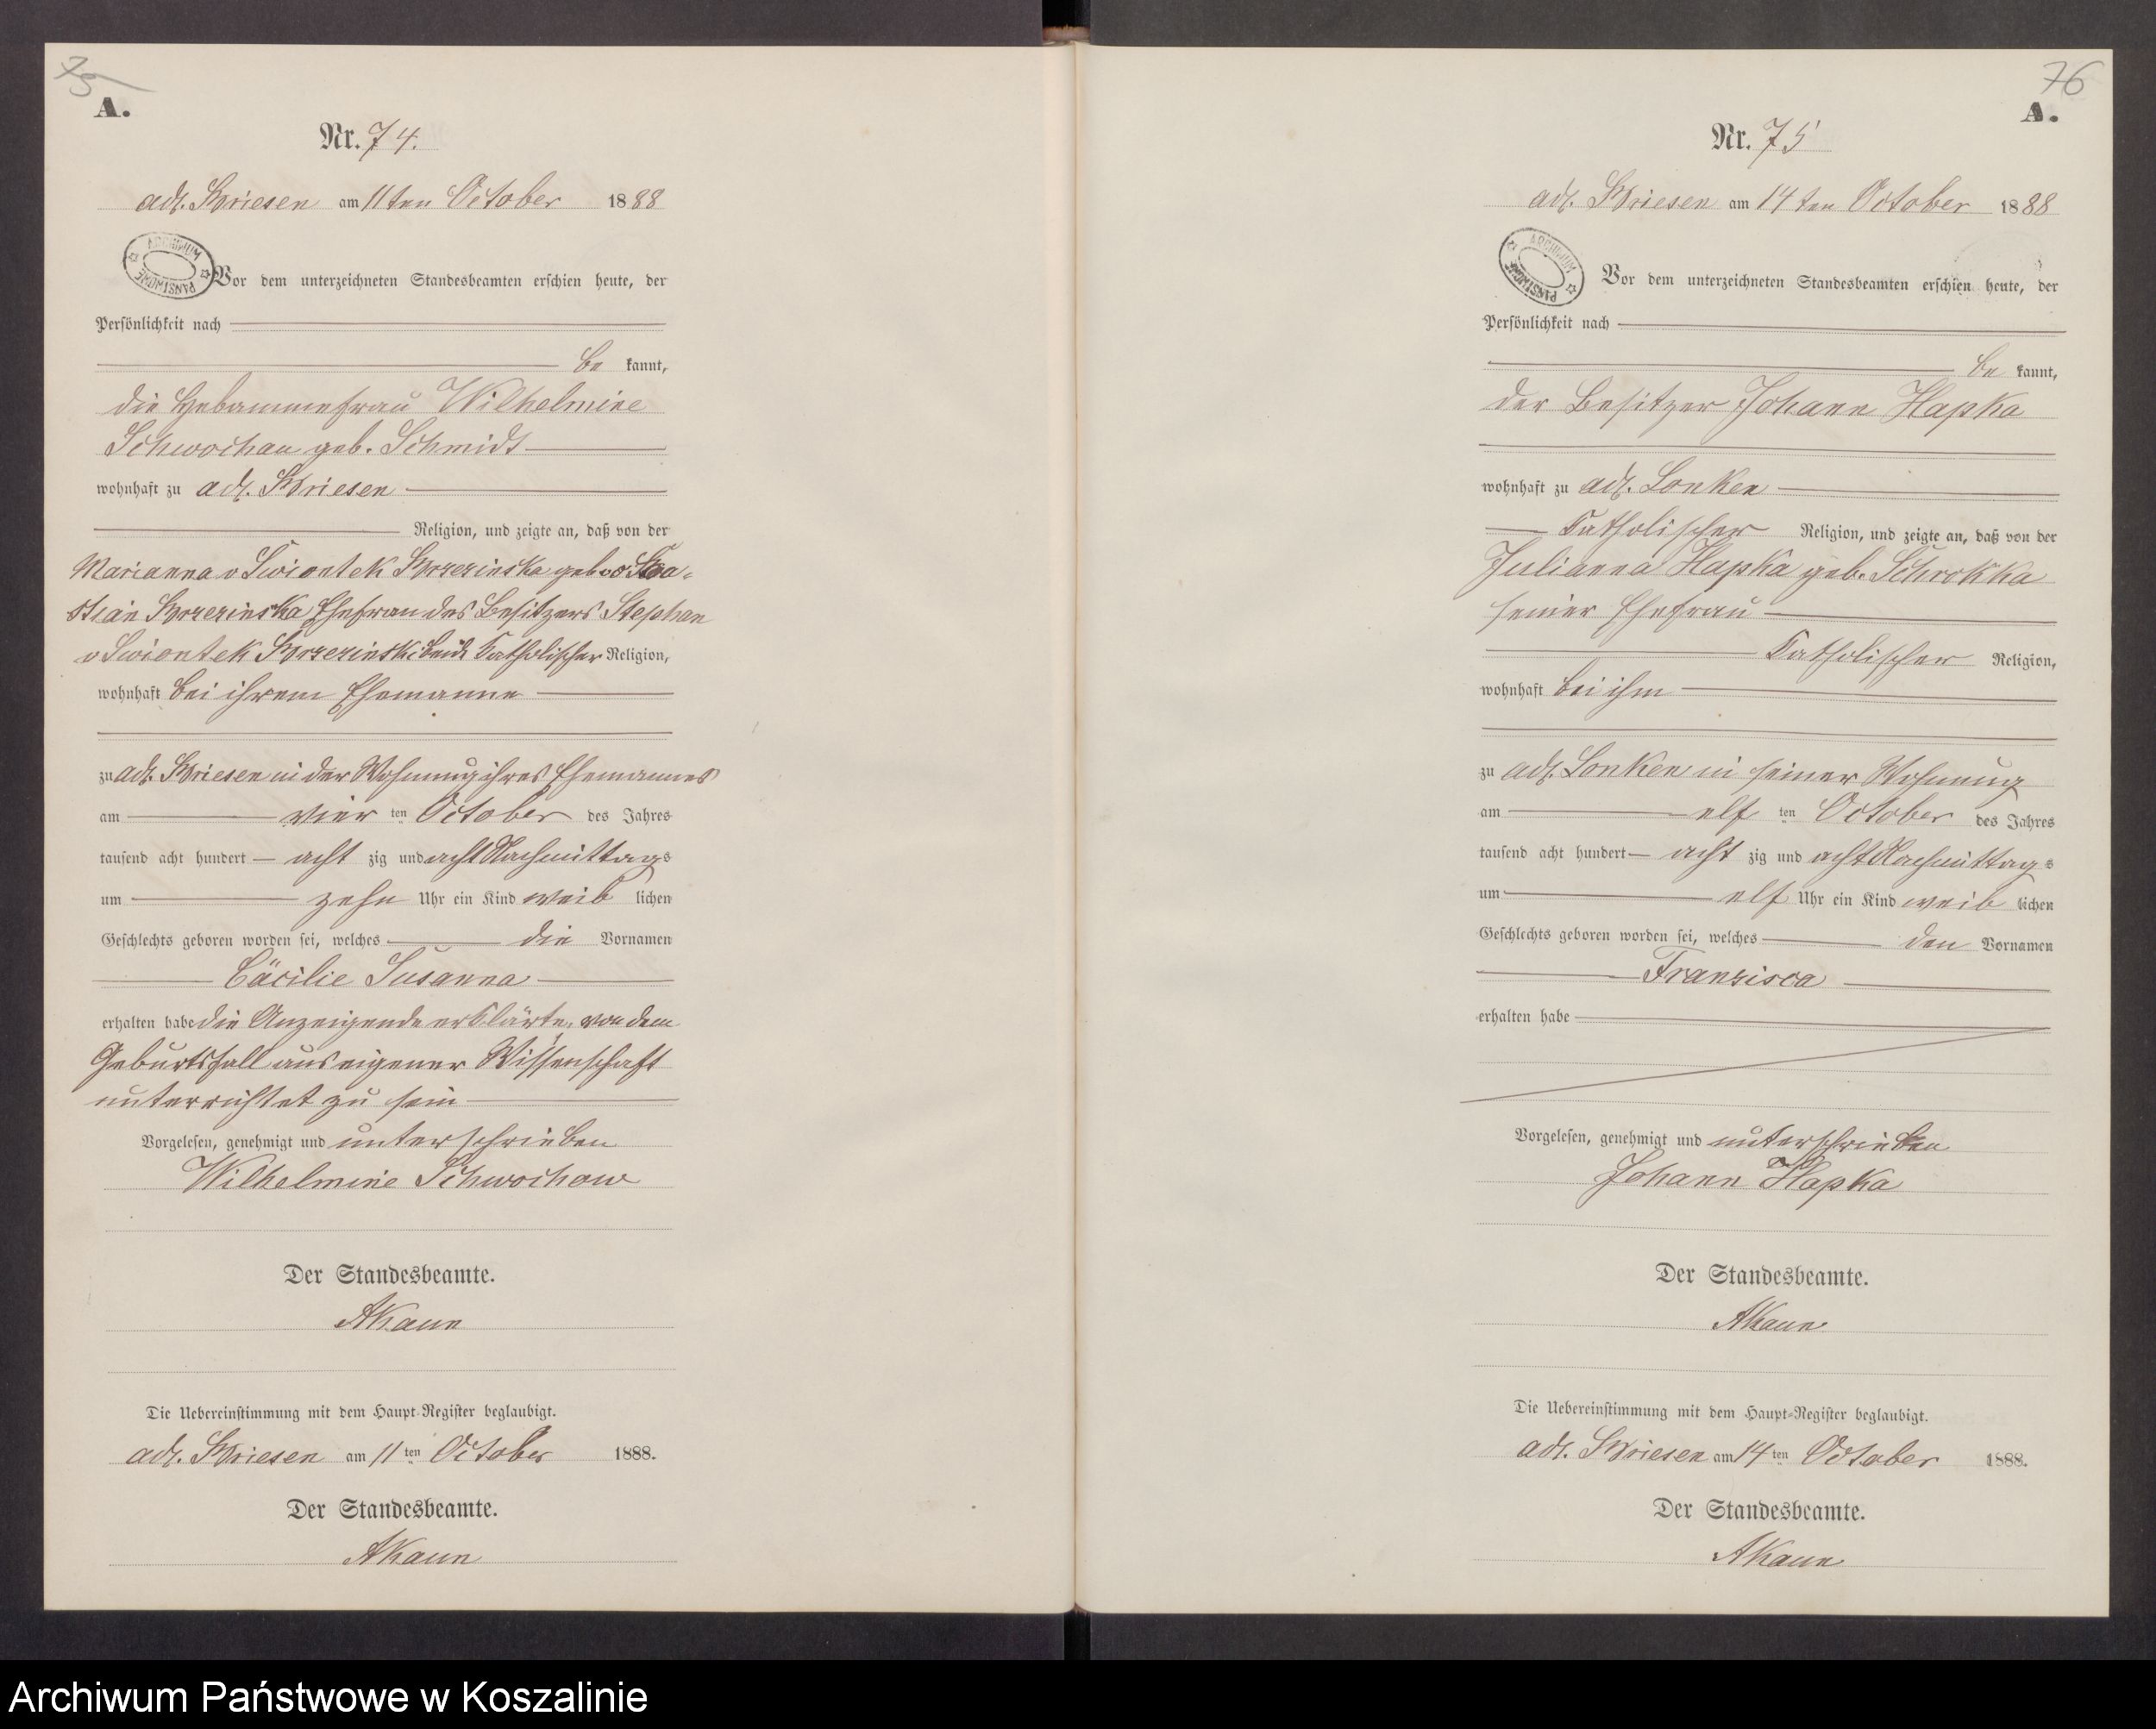 75
A.
Nr. 74.
adl. Briesen am 11ten October 1888
ARCHIWUM PAŃSTWOWE
Vor dem unterzeichneten Standesbeamten erschien heute, der
Persönlichkeit nach
be kannt,
die Hebammefrau Wilhelmine
Schwochau geb. Schmidt
wohnhaft zu adl. Briesen
Religion, und zeigte an, daß von der
Marianna v Swiontek Brzezinska geb. v
Brzezinska Ehefrau des Besitzers Stephan
v Swiontek Brzezinski beide Katholischer Religion,
wohnhaft bei ihrem Ehemanne
zu adl. Briesen in der Wohnung ihres Ehemannes
am vier ten October des Jahres
tausend acht hundert acht zig und acht Nachmittags
um zehn Uhr ein Kind weib lichen
Geschlechts geboren worden sei, welches die Vornamen
Cäcilie Susanna
erhalten habe die Anzeigende erklärte, von dem
Geburtsfall aus eigener Wissenschaft
unterrichtet zu sein
Vorgelesen, genehmigt und unterschrieben
Wilhelmine Schwochow
Der Standesbeamte.
AKaun
Die Uebereinstimmung mit dem Haupt-Register beglaubigt.
adl. Briesen am 11 ten October 1888.
Der Standesbeamte.
AKaun
76
A.
Nr. 75
adl. Briesen am 14 ten October 1888
ARCHIWUM PAŃSTWOWE
Vor dem unterzeichneten Standesbeamten erschien heute, der
Persönlichkeit nach
be kannt,
der Besitzer Johann Hapka
wohnhaft zu adl. Lonken
Katholischer Religion, und zeigte an, daß von der
Julianna Hapka geb. Schrokka
seiner Ehefrau
Katholischer Religion,
wohnhaft bei ihm
zu adl. Lonken in seiner Wohnung
am elf ten October des Jahres
tausend acht hundert acht zig und acht Nachmittags
um elf Uhr ein Kind weib lichen
Geschlechts geboren worden sei, welches den Vornamen
Franzisca
erhalten habe
Vorgelesen, genehmigt und unterschrieben
Johann Hapka
Der Standesbeamte.
AKaun
Die Uebereinstimmung mit dem Haupt-Register beglaubigt.
adl. Briesen am 14 ten October 1888.
Der Standesbeamte.
AKaun
Archiwum Państwowe w Koszalinie